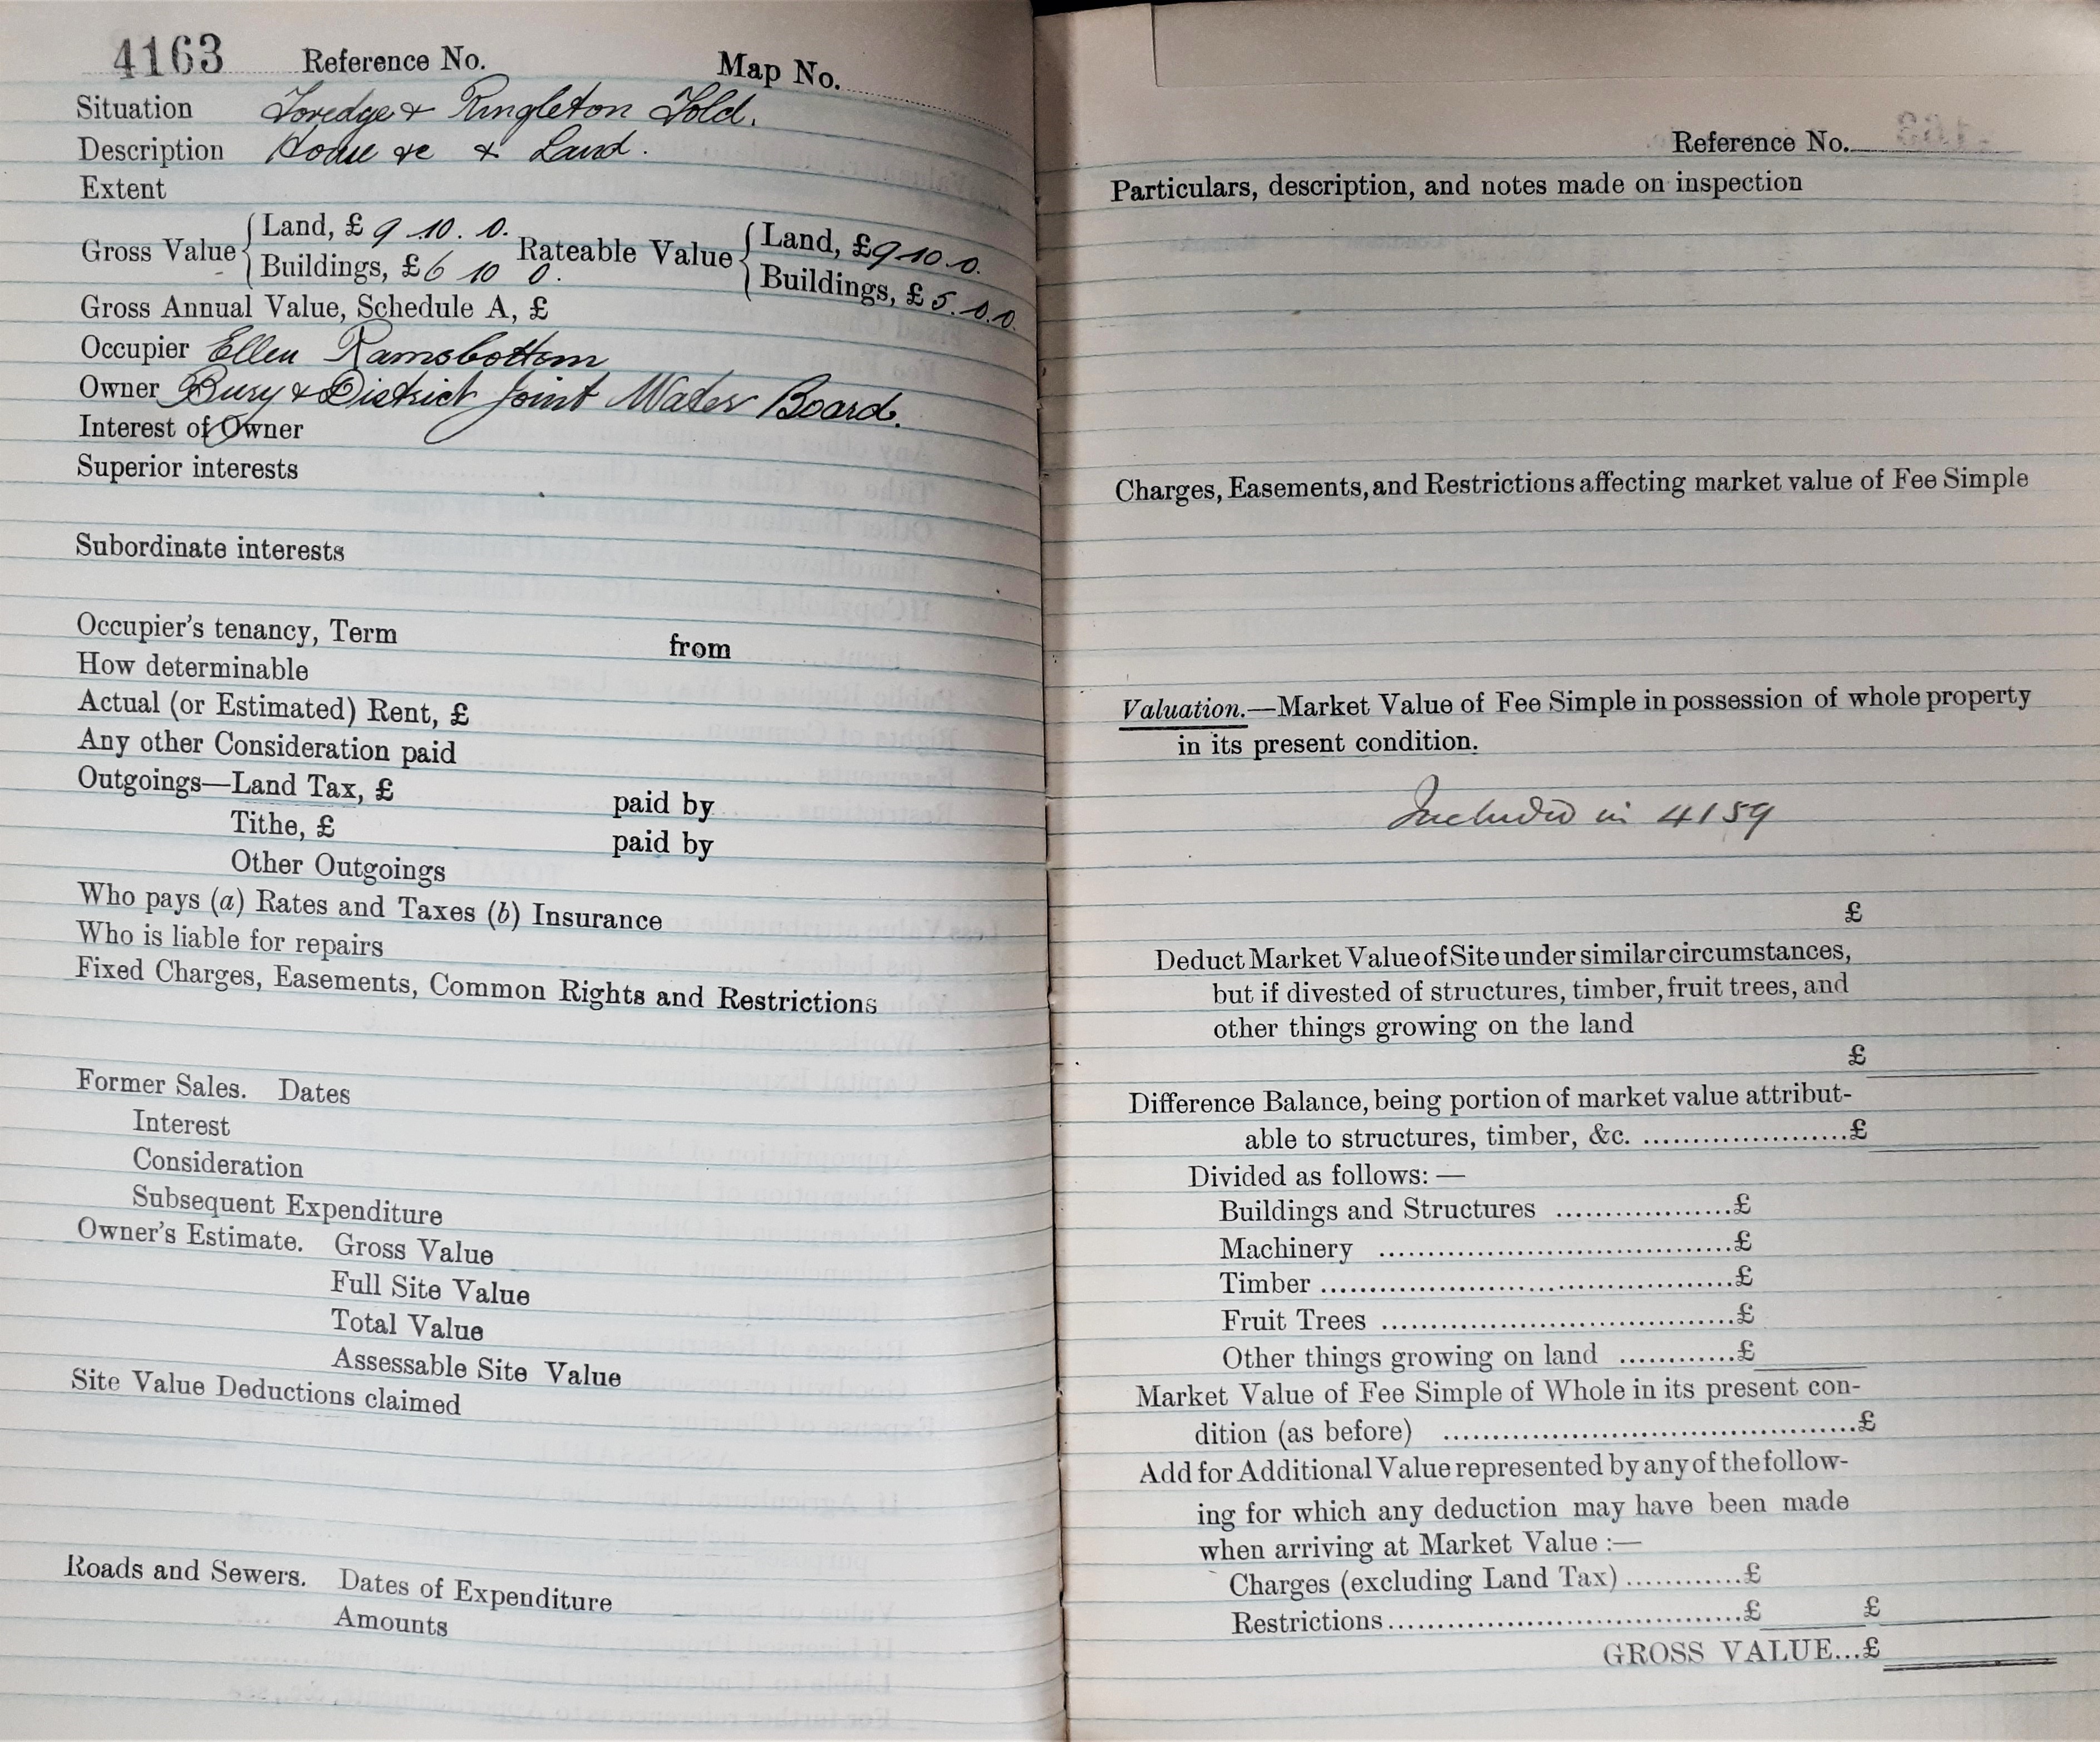 4163 Reference No. Map No.
Situation Foredge & Ringleton Fold.
Description House &c & Land.
Extent
Gross Value { Land, £ 9. 10. 0. Rateable Value { Land, £ 9. 10. 0.
Buildings, £ 6 10 0. Buildings, £ 5. 0. 0.
Gross Annual Value, Schedule A, £
Occupier Ellen Ramsbottom
Owner Bury & District Joint Water Board.
Interest of Owner
Superior interests
Subordinate interests
Occupier's tenancy, Term from
How determinable
Actual (or Estimated) Rent, £
Any other Consideration paid
Outgoings—Land Tax, £ paid by
Tithe, £ paid by
Other Outgoings
Who pays (a) Rates and Taxes (b) Insurance
Who is liable for repairs
Fixed Charges, Easements, Common Rights and Restrictions
Former Sales. Dates
Interest
Consideration
Subsequent Expenditure
Owner's Estimate. Gross Value
Full Site Value
Total Value
Assessable Site Value
Site Value Deductions claimed
Roads and Sewers. Dates of Expenditure
Amounts
Reference No.
Particulars, description, and notes made on inspection
Charges, Easements, and Restrictions affecting market value of Fee Simple
Valuation.—Market Value of Fee Simple in possession of whole property
in its present condition.
Included in 4159
£
Deduct Market Value of Site under similar circumstances,
but if divested of structures, timber, fruit trees, and
other things growing on the land
£
Difference Balance, being portion of market value attribut-
able to structures, timber, &c. .....................£
Divided as follows:—
Buildings and Structures ..................£
Machinery ....................................£
Timber ..........................................£
Fruit Trees ....................................£
Other things growing on land ............£
Market Value of Fee Simple of Whole in its present con-
dition (as before) ..........................................£
Add for Additional Value represented by any of the follow-
ing for which any deduction may have been made
when arriving at Market Value :—
Charges (excluding Land Tax) ............£
Restrictions ....................................£ £
GROSS VALUE...£